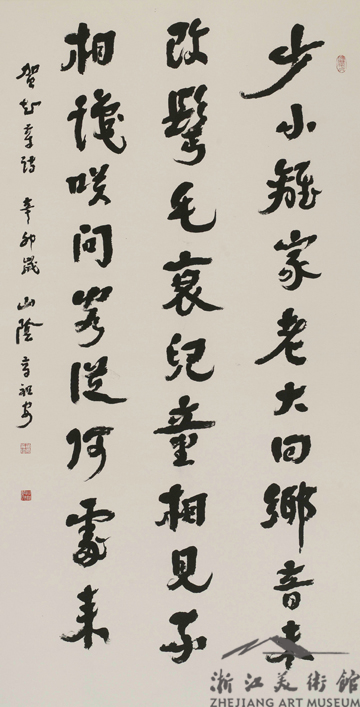 少小離家老大回鄉音未
改鬢毛衰兒童相見不
相識咲問客從何處來
賀知章詩 辛卯歲 山陰 章祖安
浙江美術館
ZHEJIANG ART MUSEUM